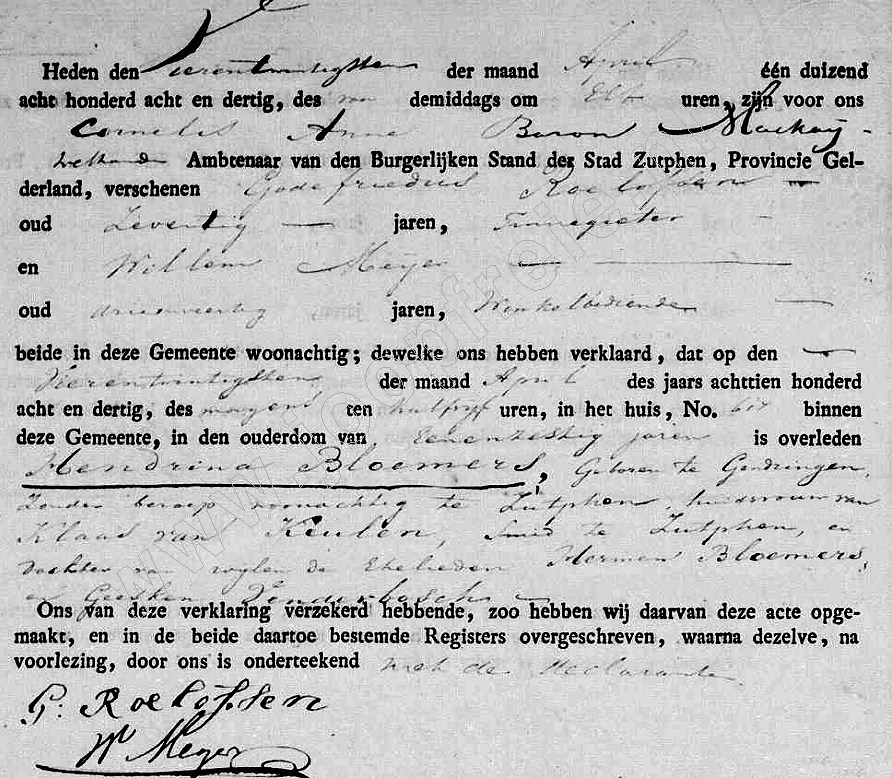 Heden den Vierentwintigsten der maand April één duizend
acht honderd acht en dertig, des voor demiddags om Elf uren, zijn voor ons
Cornelis Anne Baron Mackay
Ambtenaar van den Burgerlijken Stand der Stad Zutphen, Provincie Gel-
derland, verschenen Godefriedus Roelofssen
oud Zeventig jaren, Tinnegieter
en Willem Meijer
oud drieenveertig jaren, Winkelbediende
beide in deze Gemeente woonachtig; dewelke ons hebben verklaard, dat op den
Vierentwintigsten der maand April des jaars achttien honderd
acht en dertig, des morgens ten half vijf uren, in het huis, No. binnen
deze Gemeente, in den ouderdom van Eenenzestig jaren is overleden
Hendrina Bloemers, Geboren te Gendringen,
Zonder beroep woonachtig te Zutphen, huisvrouw van
Klaas van Keulen, Smid te Zutphen, en
dochter van wylen de Ehelieden Hermen Bloemers,
en Geesken
Ons van deze verklaring verzekerd hebbende, zoo hebben wij daarvan deze acte opge-
maakt, en in de beide daartoe bestemde Registers overgeschreven, waarna dezelve, na
voorlezing, door ons is onderteekend met de declaranten
G: Roelofssen
W Meyer